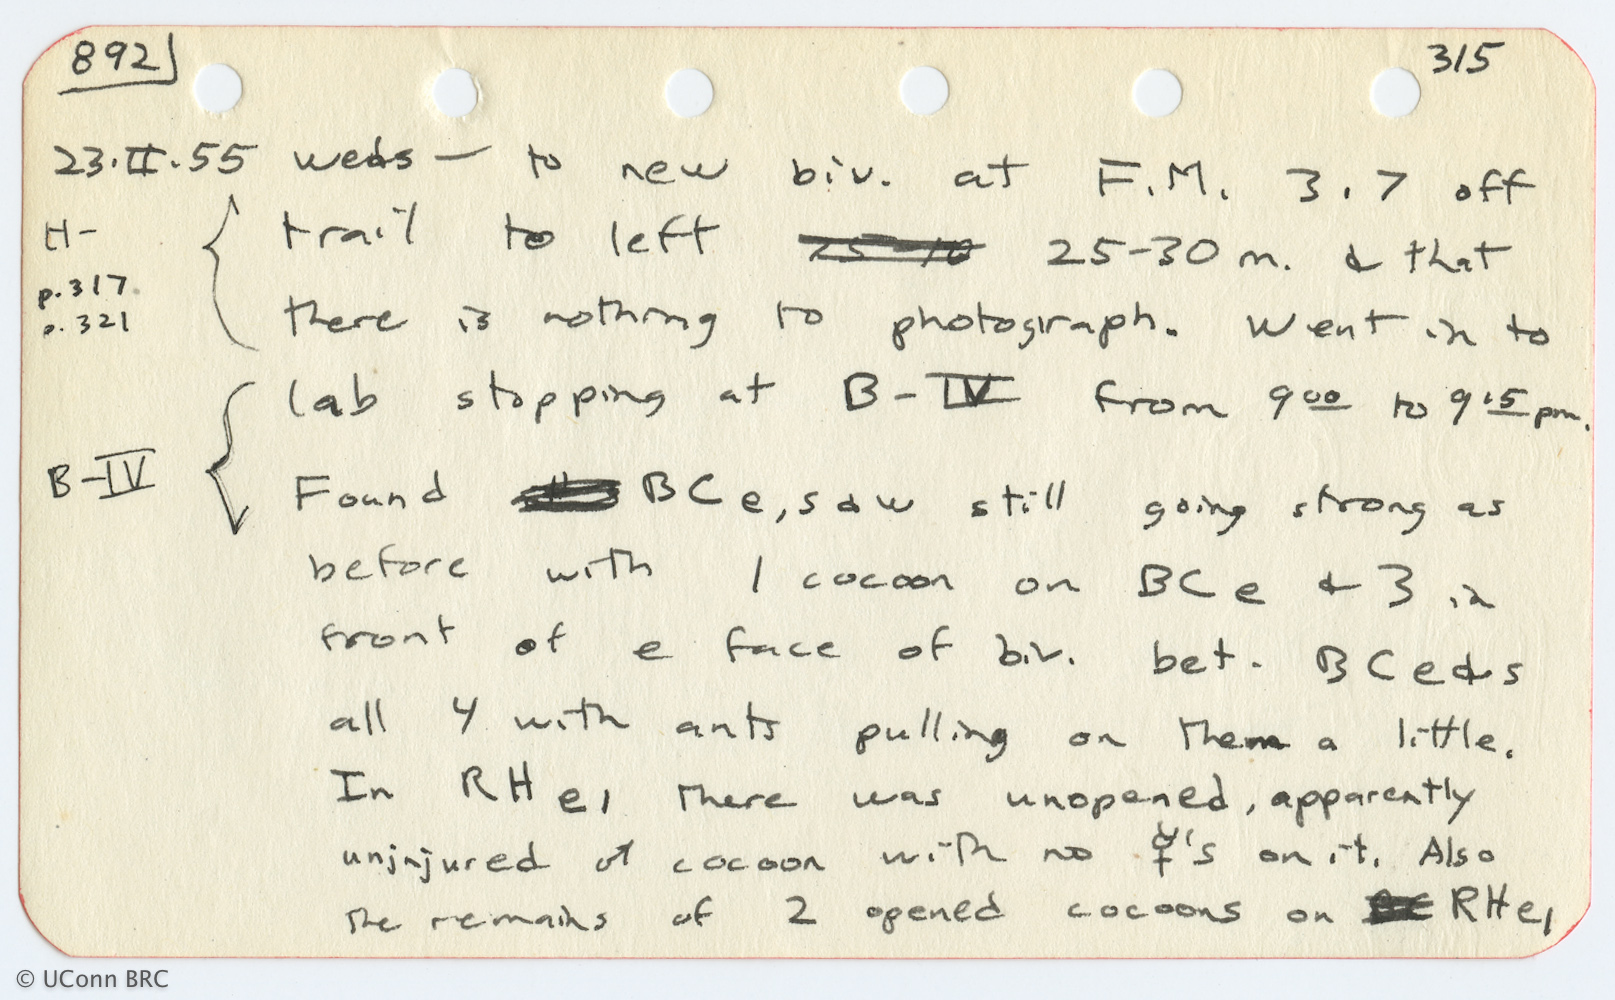 892 315
23.II.55 weds — to new biv. at F.M. 3.7 off
H- trail to left 25-30 m. & that
p.317
p.321 there is nothing to photograph. Went in to
lab stopping at B-IV from 9 00 to 9 15 pm.
B-IV Found BCe, saw still going strong as
before with 1 cocoon on BCe & 3 in
front of e face of biv. bet. BCe&s
all 4 with ants pulling on them a little.
In RHe1 there was unopened, apparently
uninjured ♂ cocoon with no ☿'s on it. Also
the remains of 2 opened cocoons on RHe1
© UConn BRC